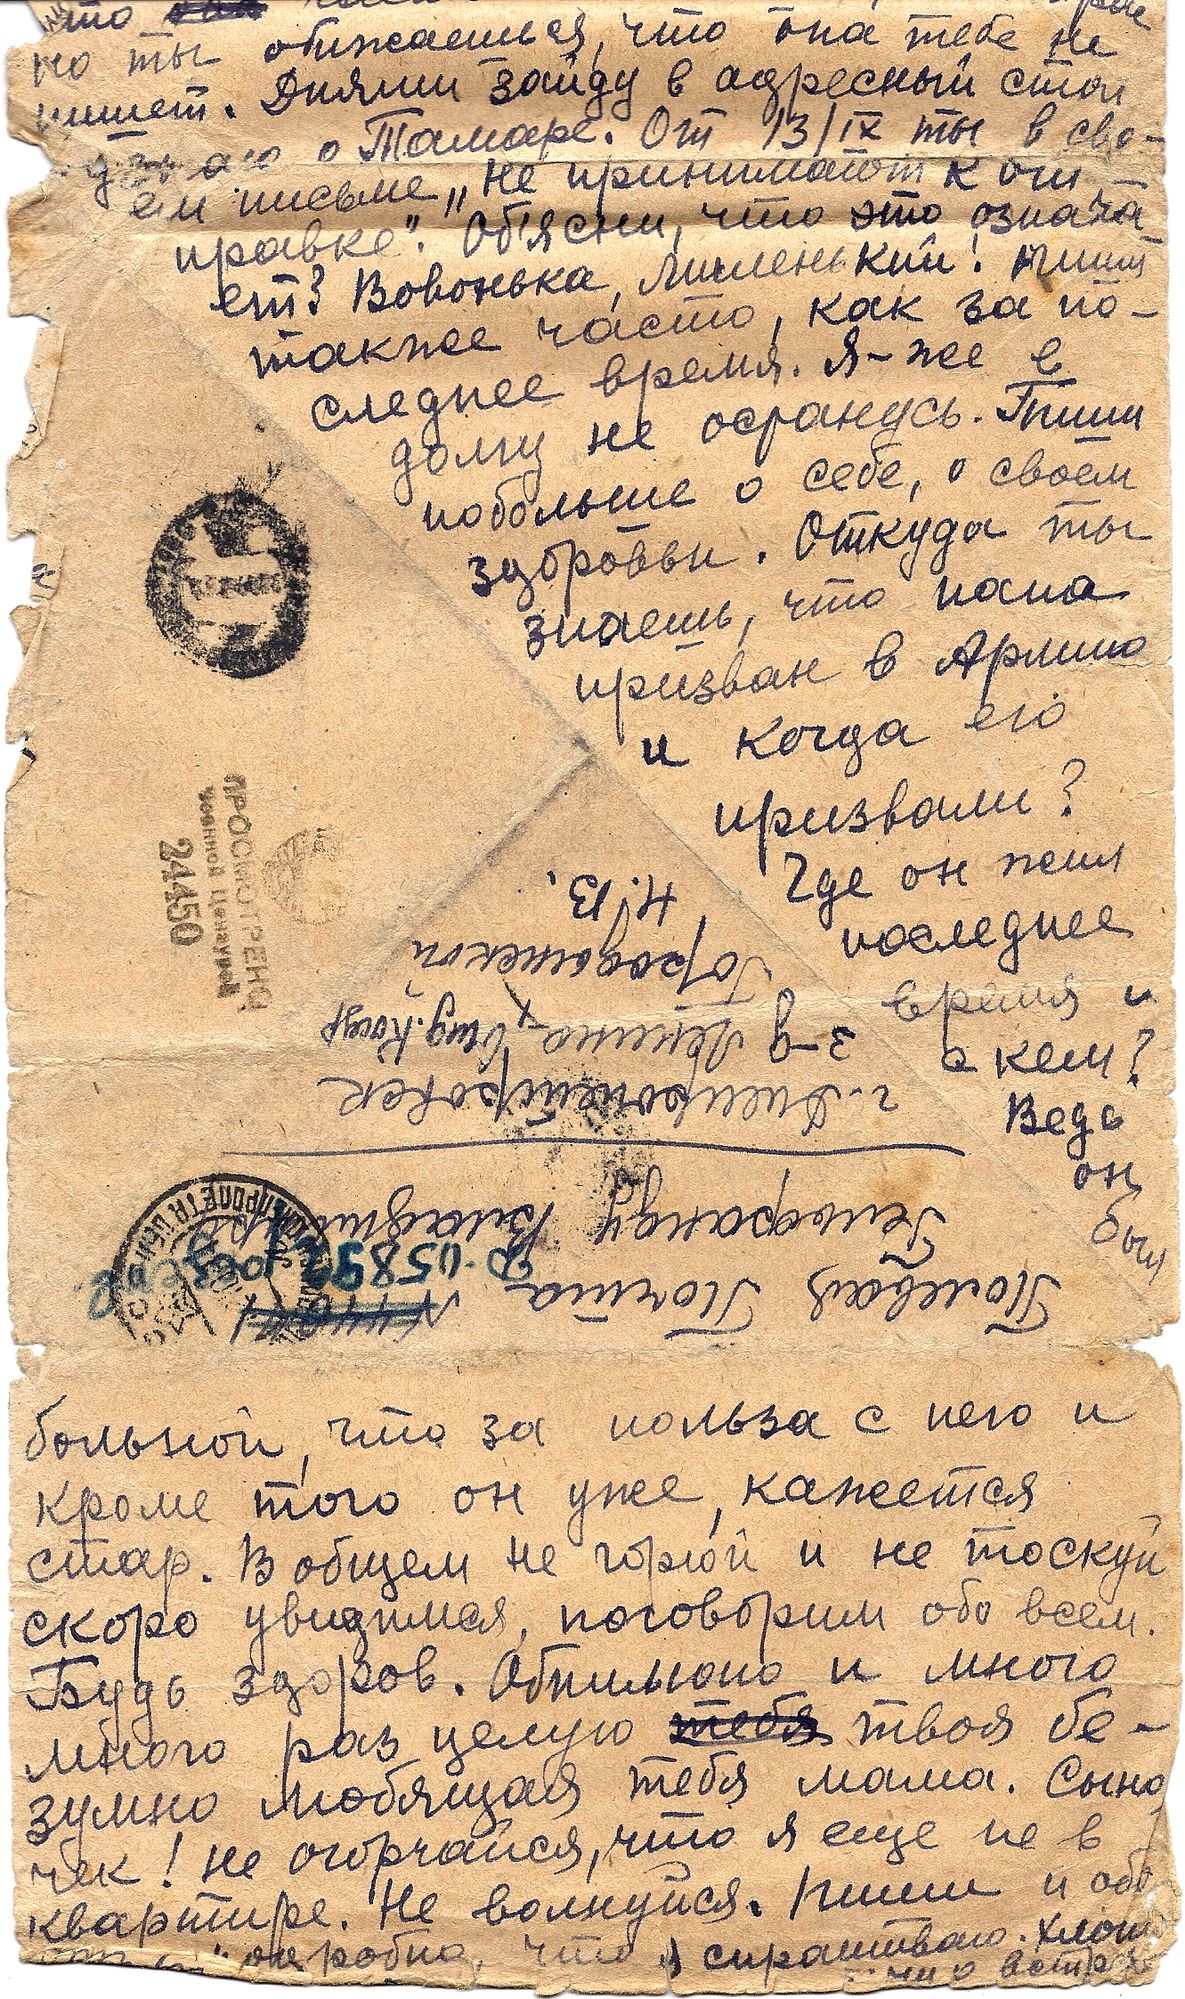 что
но ты обижаешься, что она тебе не
пишет. Днями зайду в адресный стол
узнаю о Тамаре. От 13/IX ты в сво-
ем письме „Не принимают к отп
правке". Об'ясни, что это означа
ет? Вовонька, миленький! Пиши
также часто, как за по-
следнее время. Я-же в
долгу не осранусь. Пиши
побольше о себе, о своем
здоровьи. Откуда ты
знаешь, что папа
призван в Армию
и когда его
призвали?
Где он жил
последнее
время и
с кем?
Ведь
он
был
больной, что за польза с него и
кроме того он уже, кажется
стар. В общем не горюй и не тоскуй
скоро увидимся, поговорим обо всем.
Будь здоров. Обнимаю и много
много раз целую тебя твоя бе-
зумно любящая тебя мама. Сыно
чек! Не огорчайся, что я еще не в
квартире. Не волнуйся. Пиши и обо
подробно, что я спрашиваю.
Полевая Почта
№
05897
Гельфанду Владимиру
г. Днепропетровск
з-д Ленина
Городянской
Н. В.
ПРОСМОТРЕНО
Военной Цензурой
24450
ДНЕПРОПЕТРОВСК